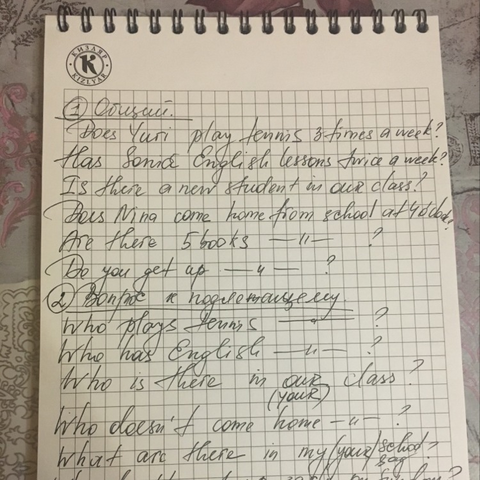 КИЗЛЯР
K
KIZLYAR
1 Общий.
Does Yuri play tennis 3 times a week?
Has Soma English lessons twice a week?
Is there a new student in our class?
Does Nina come home from school at 4 o'clock?
Are there 5 books —"— ?
Do you get up —"— ?
2 Вопрос к подлежащему.
Who plays tennis —"— ?
Who has English —"— ?
Who is there in our class?
(your)
Who doesn't come home —"— ?
What are there in my/your/school
bag